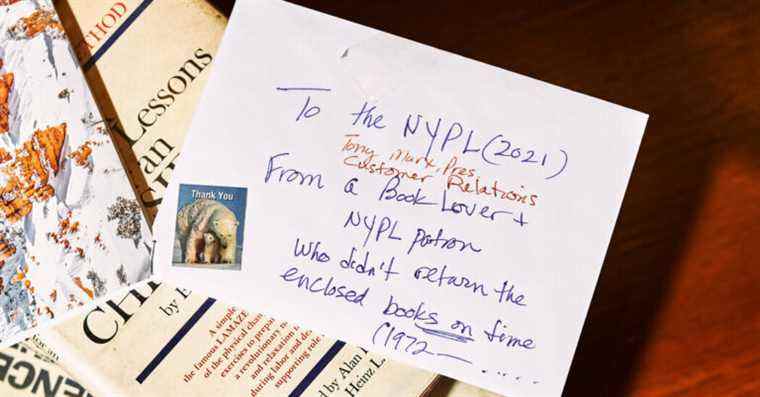 To the NYPL (2021)
Tony Marx, Pres.
Customer Relations
From a Book Lover +
NYPL patron
who didn't return the
enclosed books on time
(1972— .....
Thank You
THOD
Lessons
an
CH
by E
A simple
the famous LAMAZE
of the physical chan
exercises to prepar
a revolutionary n
and relaxation
during labor and de
supporting role
d by Alan
Heinz L.
ENC